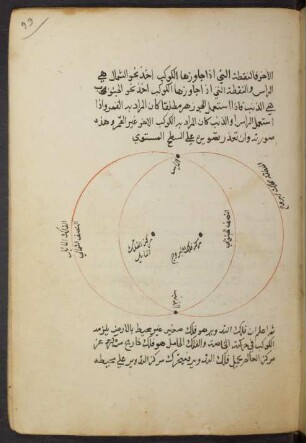 فالنقطة التي اذا جاوزها الكوكب اخذ نحو الشمال هي
الراس والنقطة التي اذا جاوزها الكوكب اخذ نحو الجنوب
هي الذنب فاذا استعمل الجوزهر مطلقا كان المراد به القمر واذا
استعمل الراس والذنب كان المراد به الكوكب غير القمر وهذه
صورته وان تعذر تصويره على السطح المستوي
الفلك المايل
النصف الشمالي
مركز الفلك
المايل
النصف الجنوبي
ثم اعلم ان فلك التدوير هو فلك صغير غير محيط بالارض يلزمه
الكوكب في حركته الخاصة والفلك الحامل هو فلك خارج مركزه عن
مركز العالم يحمل فلك التدوير ويتحرك مركز التدوير على محيطه